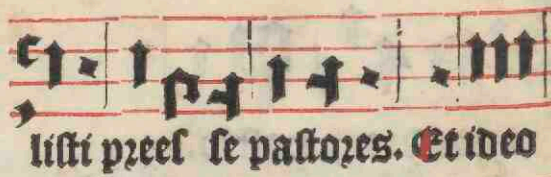 liſti preeſ ſe paſtores. Et ideo